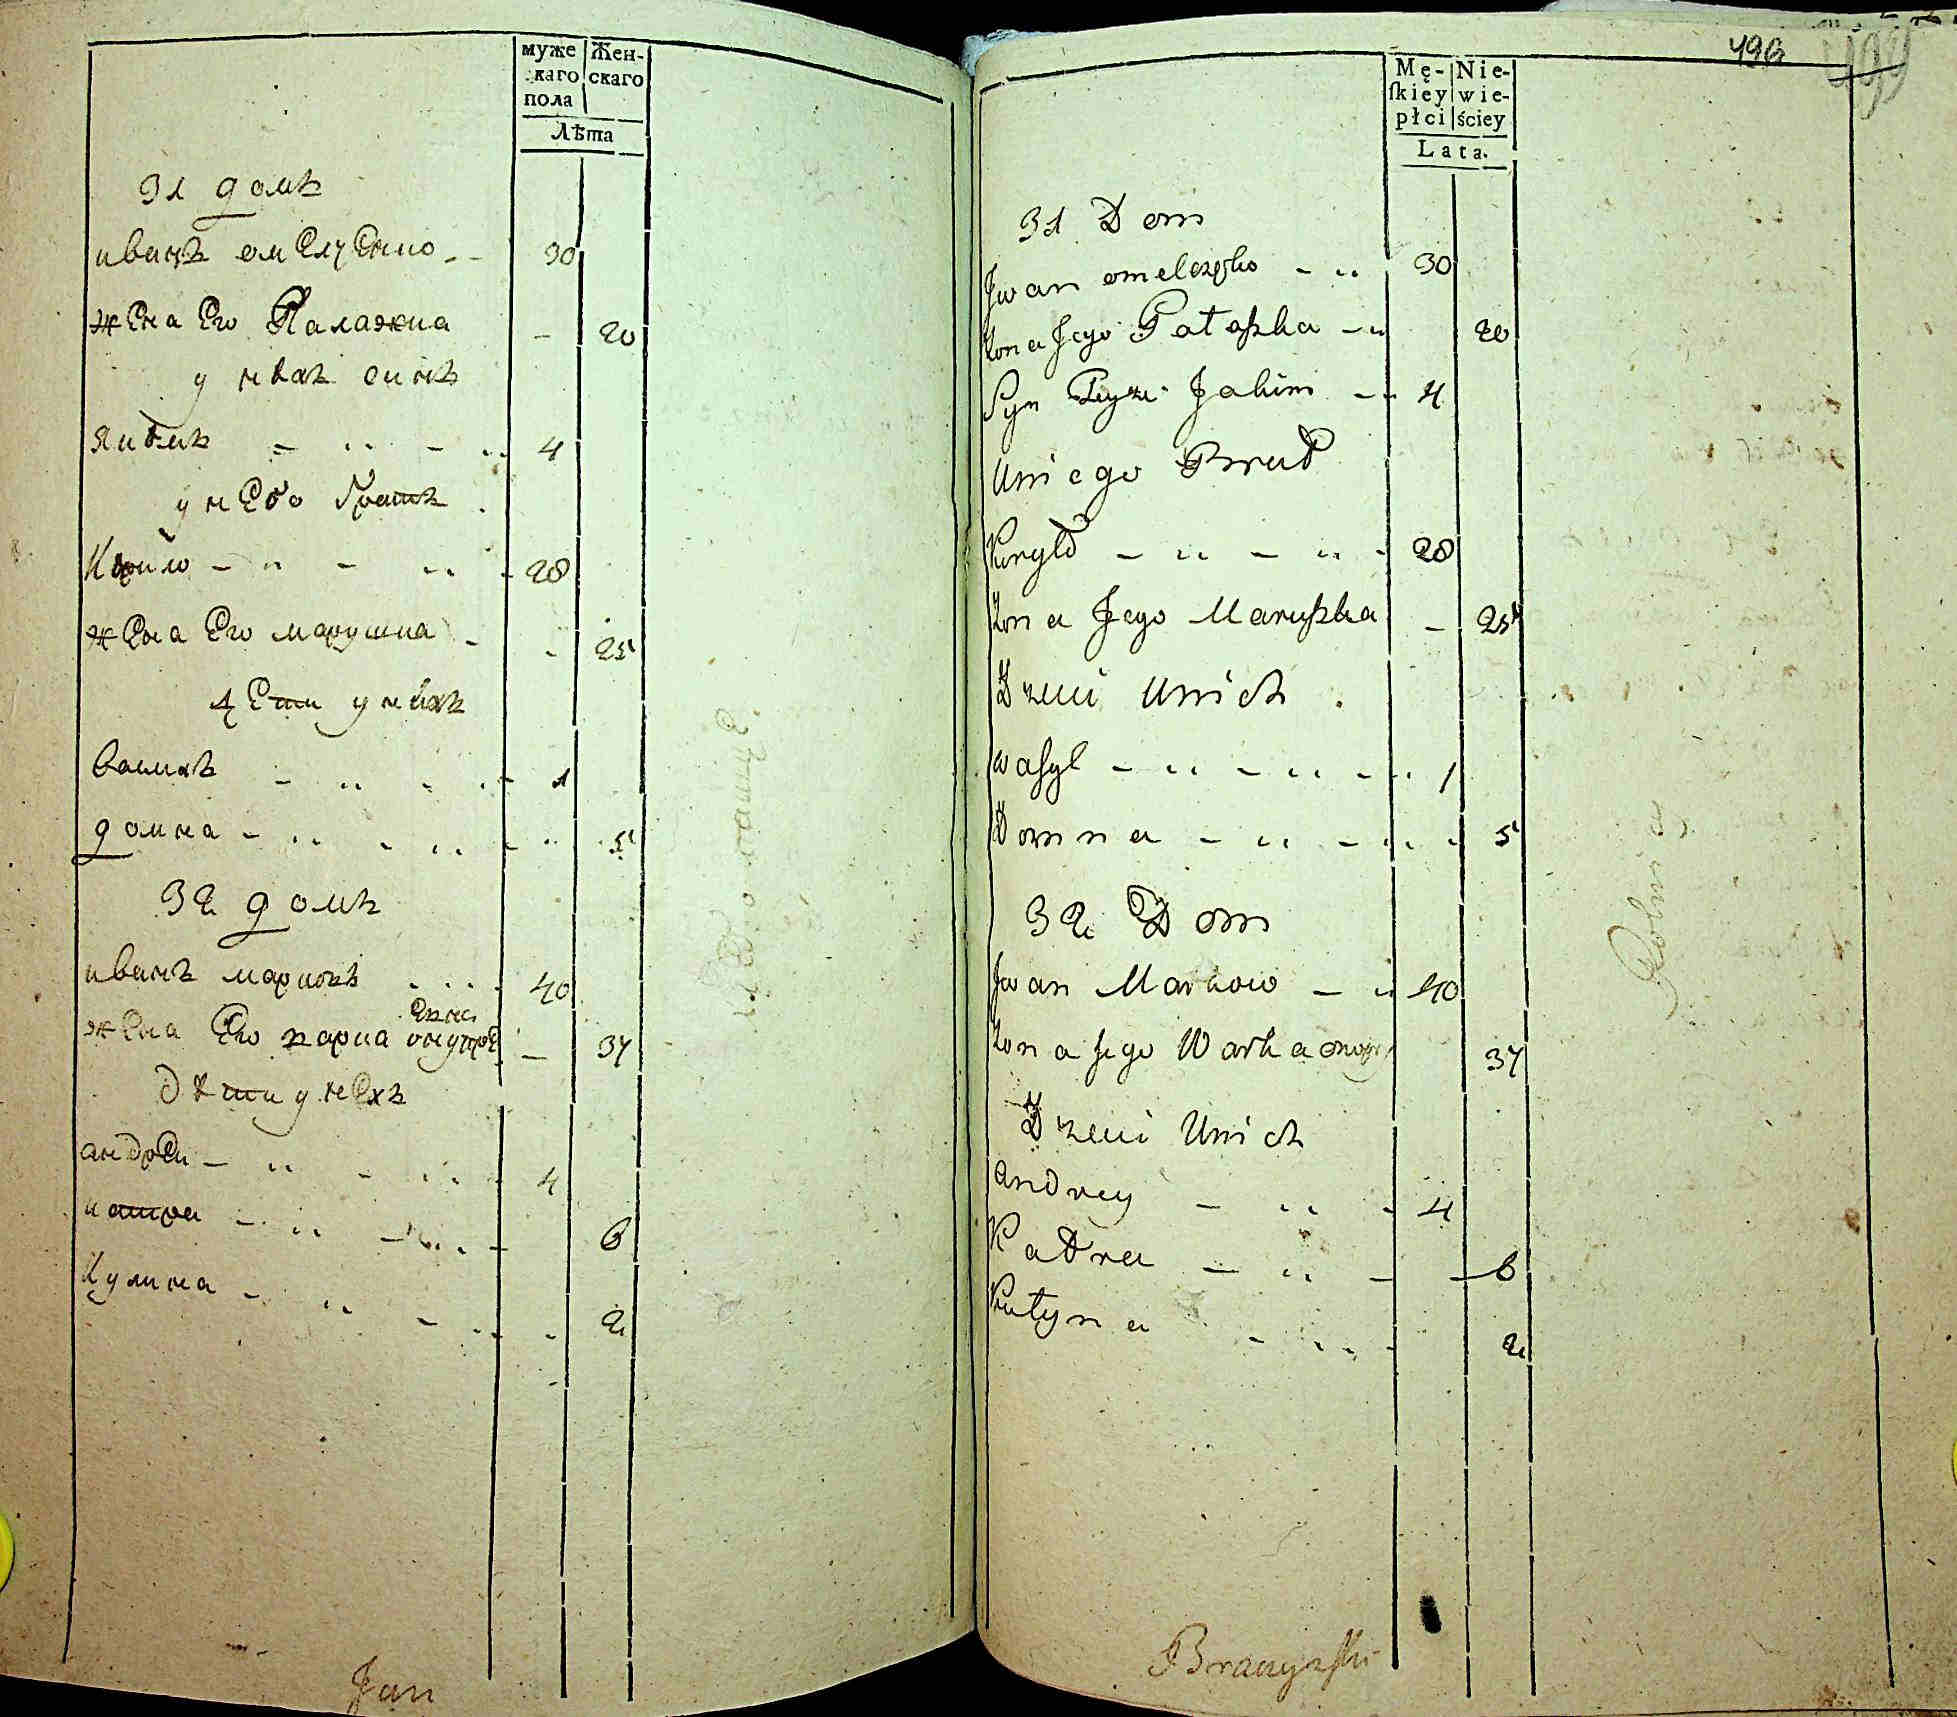 муже
каго
пола
Жен-
скаго
Лѣта
31 домъ
иванъ омелченко 30
жена Его Палажка 20
у нвхъ синъ
якимъ 4
у нЕго братъ
Кирило 28
жена Его марушка 25
дЕти у нихъ
васил 1
домна 5
32 домъ
иванъ марковъ 40
жена Его варка 37
Дѣти у нЕхъ
андрЕи 4
катра 6
Кулина 2
Jan
496
Mę-
ſkiey
płci
Nie-
wie-
ściey
Lata.
31 Dom
Jwan omelczęko 30
Zona Jego Pałaszka 20
Syn Jakim 4
Uniego Brat
Kiryło 28
Zona Jego Maruszka 25
Dzieci Unich
wasyl 1
Domna 5
32 Dom
Jwan Markow 40
Zona jego Warka 37
Dzieci Unich
andrey 4
Katra 6
Kulyna 2
Rolnicy